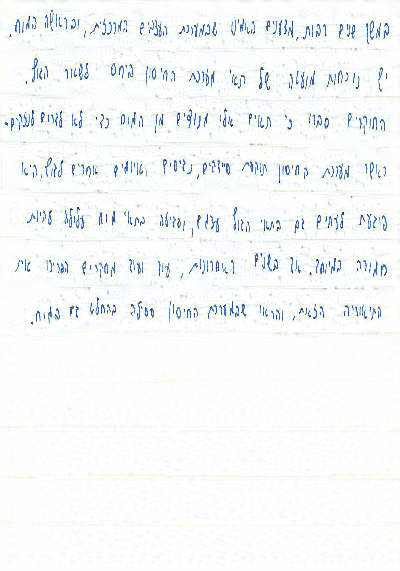 במשך שנים רבות, מדענים האמינו שבמערכת העצבים המרכזית, ובראשה המוח,
יש נוכחות מועטה של תאי מערכת החיסון ביחס לשאר הגוף.
החוקרים סברו כי תאים אלו מנודפים מן המוח כדי לא לגרום לנזקים.
כאשר מערכת החיסון תוקפת חיידקים, נגיפים ואיומים אחרים לגוף, היא
פוגעת לעתים גם בתאי הגוף עצמם, ופגיעה בתאי מוח עלולה להיות
חמורה במיוחד. אך בשנים האחרונות, עוד ועוד מחקרים הפריכו את
התיאוריה הזאת, והראו שבמערכת החיסון פעילה בהחלט גם במוח.